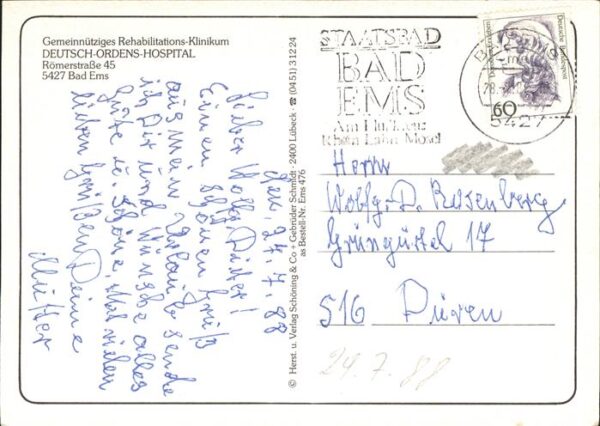 Gemeinnütziges Rehabilitations-Klinikum
DEUTSCH-ORDENS-HOSPITAL
Römerstraße 45
5427 Bad Ems
den, 24.7.88
Lieber Wolf-Dieter!
Einen schönen Gruß
aus mein Urlaub sende
ich Dir und Wünsche alles
Gute u. schöne, Mit vielen
lieben Grüßen Deine
Mutter
© Herst. u. Verlag Schöning & Co + Gebrüder Schmidt · 2400 Lübeck · ☎ (04 51) 3 12 24
as Bestell-Nr. Ems 476
STAATSBAD
BAD
EMS
Rhein Lahn Mosel
BAD EMS
5427
60
Deutsche Bundespost
Herrn
Wolfg-D. Rosenberg
Grüngürtel 17
516 Düren
24.7.88